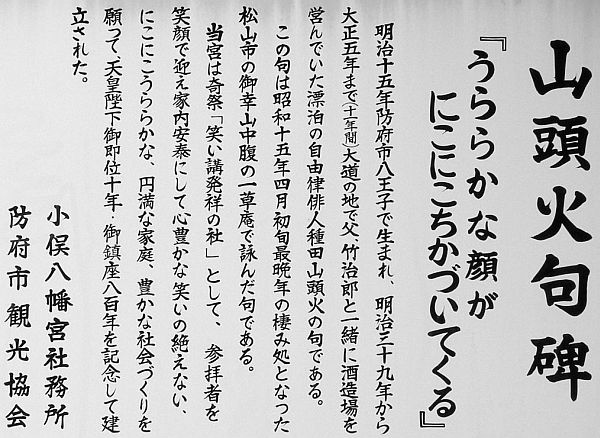 山頭火句碑
『うららかな顔が
にこにこちかづいてくる』
明治十五年防府市八王子で生まれ、明治三十九年から
大正五年まで(十年間)大道の地で父、竹治郎と一緒に酒造場を
営んでいた漂泊の自由律俳人種田山頭火の句である。
この句は昭和十五年四月初旬最晩年の棲み処となった
松山市の御幸山中腹の一草庵で詠んだ句である。
当宮は奇祭「笑い講発祥の社」として、参拝者を
笑顔で迎え家内安泰にして心豊かな笑いの絶えない、
にこにこうららかな、円満な家庭、豊かな社会づくりを
願って、天皇陛下御即位十年・御鎮座八百年を記念して建
立された。
小俣八幡宮社務所
防府市観光協会